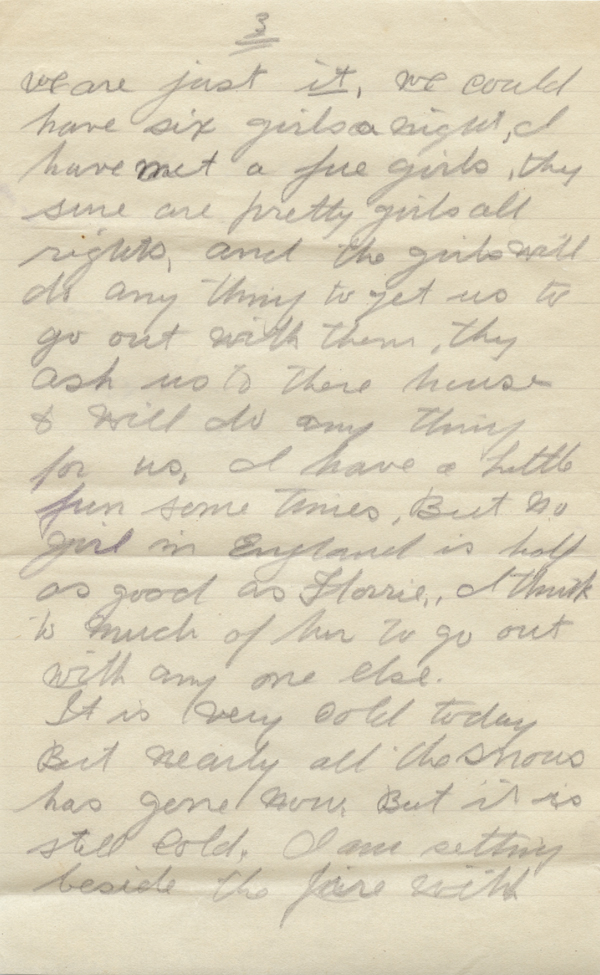 3
we are just it, we could
have six girls a night, I
have met a fue girls, thy
sure are pretty girls all
rights, and the girls will
do any thing to get us to
go out with them, thy
ask us to there house
& will do any thing
for us, I have a little
fun some times, But no
girl in England is half
as good as Florrie, I think
to much of her to go out
with any one else.
It is very cold today
But nearly all the snow
has gone now. But it is
still cold. I am setting
beside the fire with